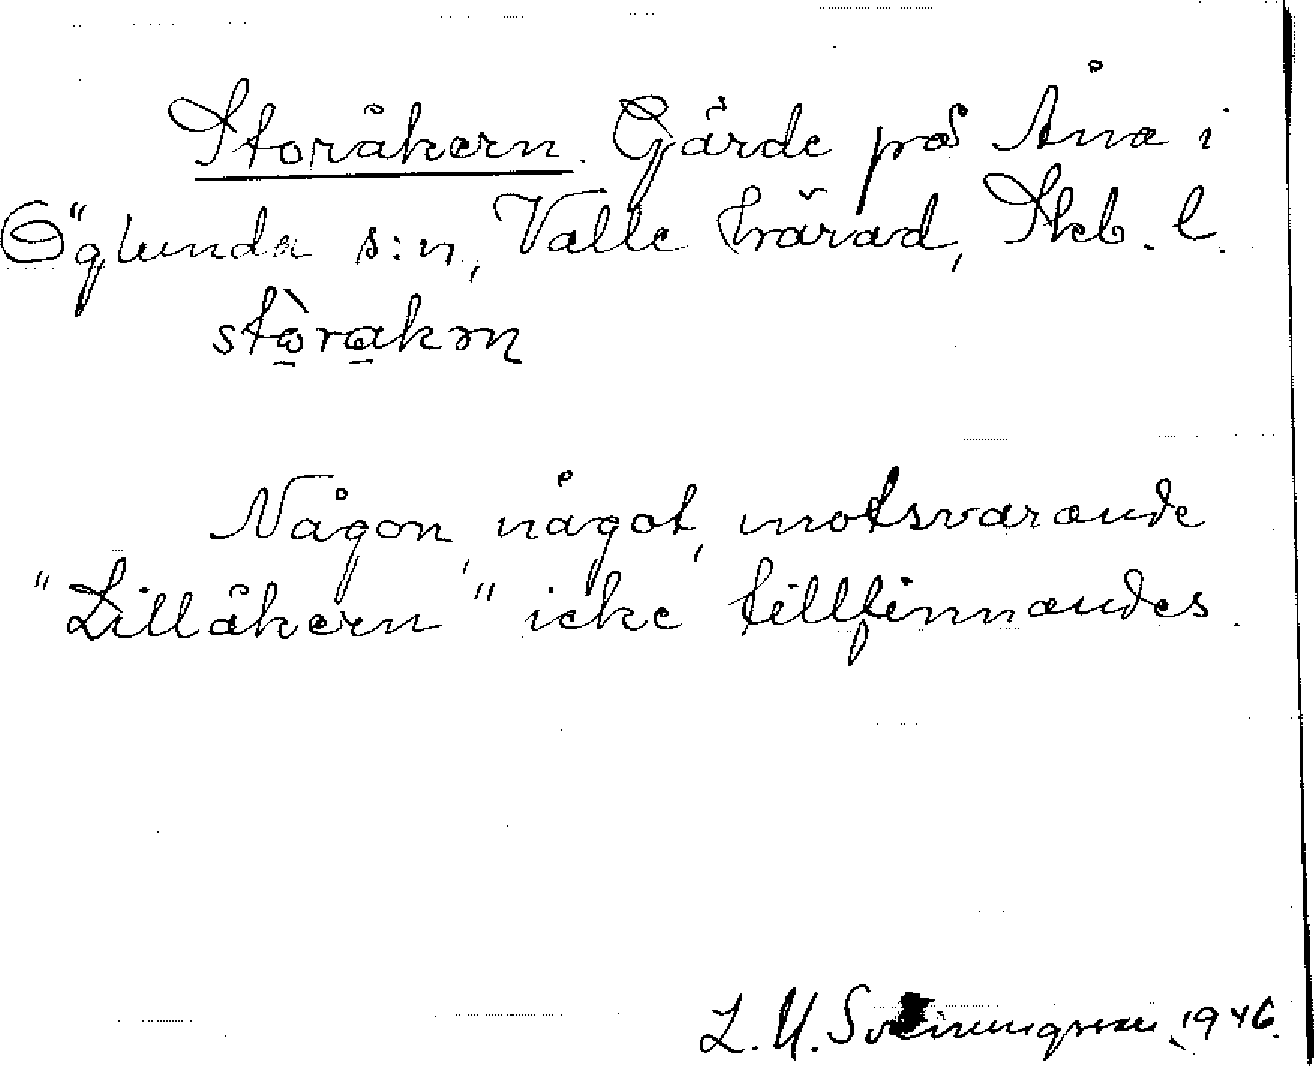 Storåkern. Gärde på Åna i
Öglunda s:n, Valle härad, Skb. l.
stòrakrn
Någon, något, motsvarande
"Lillåkern" icke tillfinnandes.
L. U. 1946.